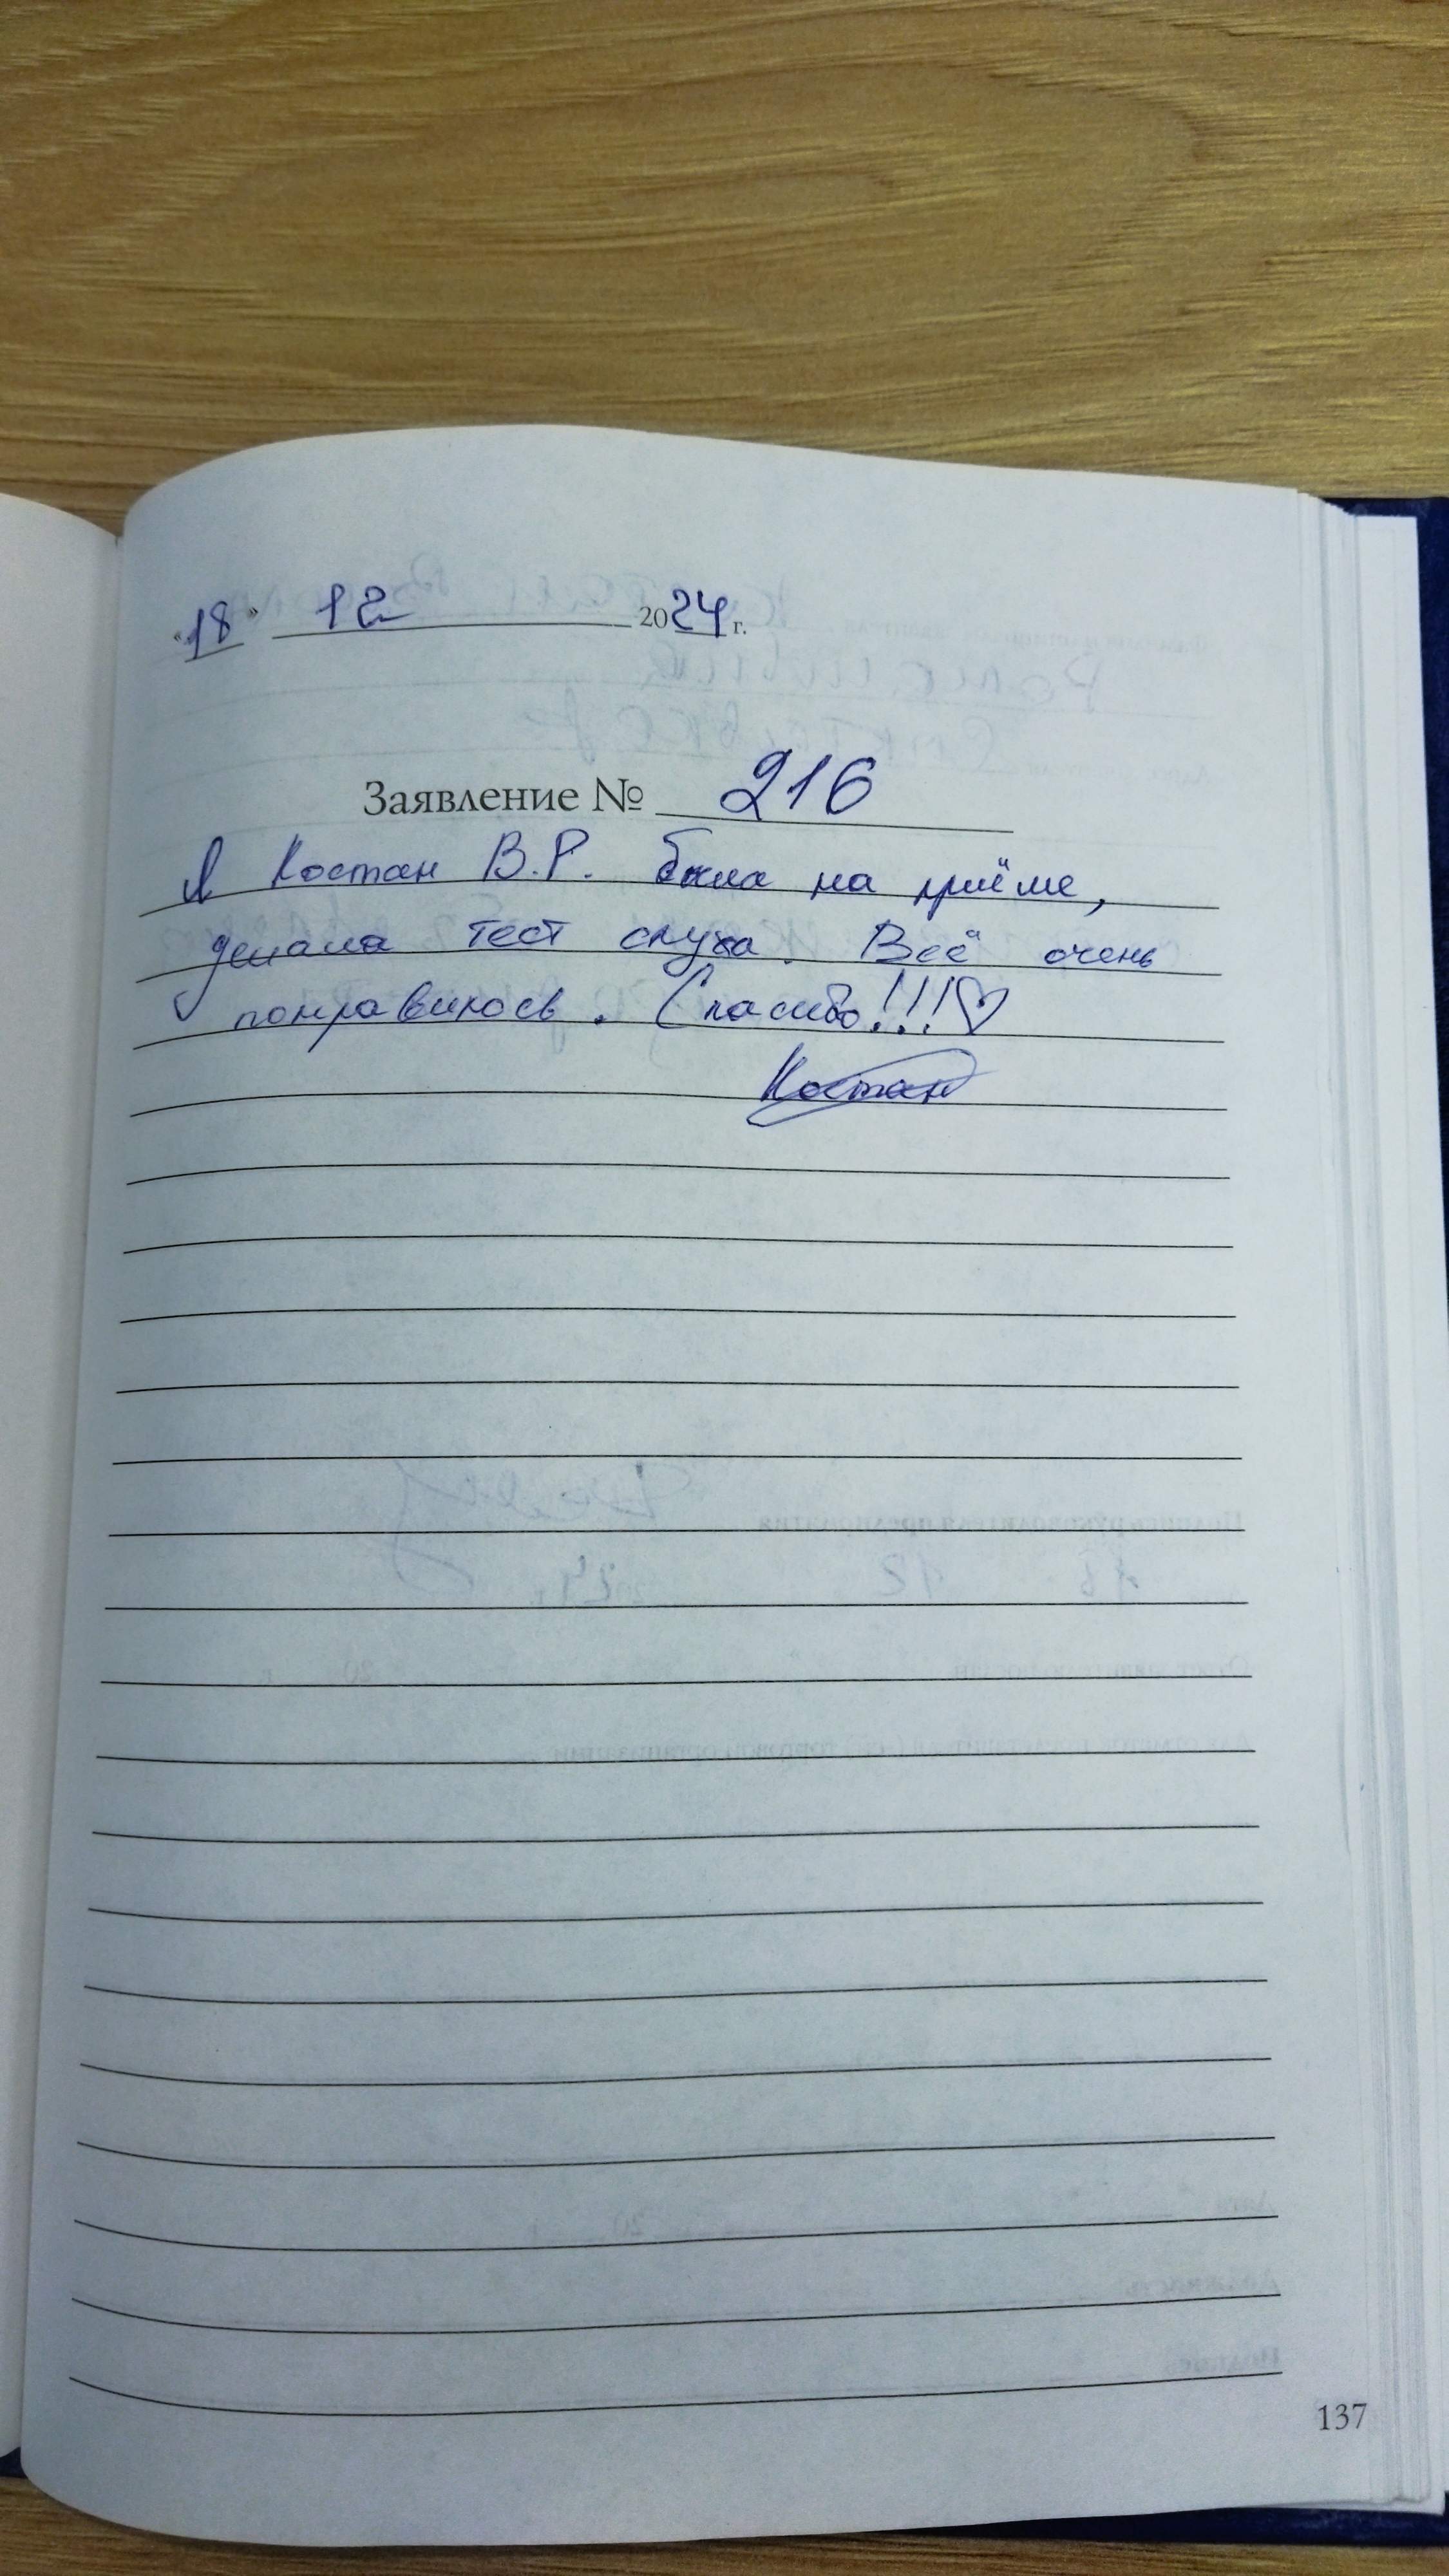 «18» 12 2024 г.
Заявление № 216
Я Костан В.Р. была на приёме,
делала тест слуха. Всё очень
понравилось. Спасибо!!!♡
Костан
137